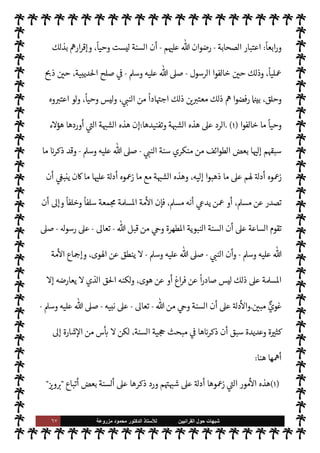 ورابعاً: اعتبار الصحابة - رضوان الله عليهم - أن السنة ليست وحياً، وإقرارهم بذلك
عملياً، وذلك حين خالفوا الرسول - صلى الله عليه وسلم - في صلح الحديبية، حين ذبح
وحلق، بينما رفضوا هم ذلك معتبرين ذلك اجتهاداً من النبي، وليس وحياً، ولو اعتبروه
وحياً ما خالفوا (١) .الرد على هذه الشبهة وتفنيدها:إن هذه الشبهة التي أوردها هؤلاء
سبقهم إليها بعض الطوائف من منكري سنة النبي - صلى الله عليه وسلم - وقد ذكرنا ما
زعموه أدلة لهم على ما ذهبوا إليه، وهذه الشبهة مع ما زعموه أدلة عليها ما كان ينبغي أن
تصدر عن مسلم، أو عمن يدعي أنه مسلم، فإن الأمة المسلمة مجمعة سلفاً وخلفاً وإلى أن
تقوم الساعة على أن السنة النبوية المطهرة وحي من قبل الله - تعالى - على رسوله - صلى
الله عليه وسلم - وأن النبي - صلى الله عليه وسلم - لا ينطق عن الهوى، وإجماع الأمة
المسلمة على ذلك ليس صادراً عن فراغ أو عن هوى، ولكنه الحق الذي لا يعارضه إلا
غويٌّ مبين.والأدلة على أن السنة وحي من الله - تعالى - على نبيه - صلى الله عليه وسلم -
كثيرة وعديدة سبق أن ذكرناها في مبحث حجية السنة. لكن لا بأس من الإشارة إلى
أهمها هنا:
(١)هذه الأمور التي زعموها أدلة على شبهتهم ورد ذكرها على ألسنة بعض أتباع "برويز"
٦٧ شبهات حول القرآنيين للأستاذ الدكتور محمود مزروعة